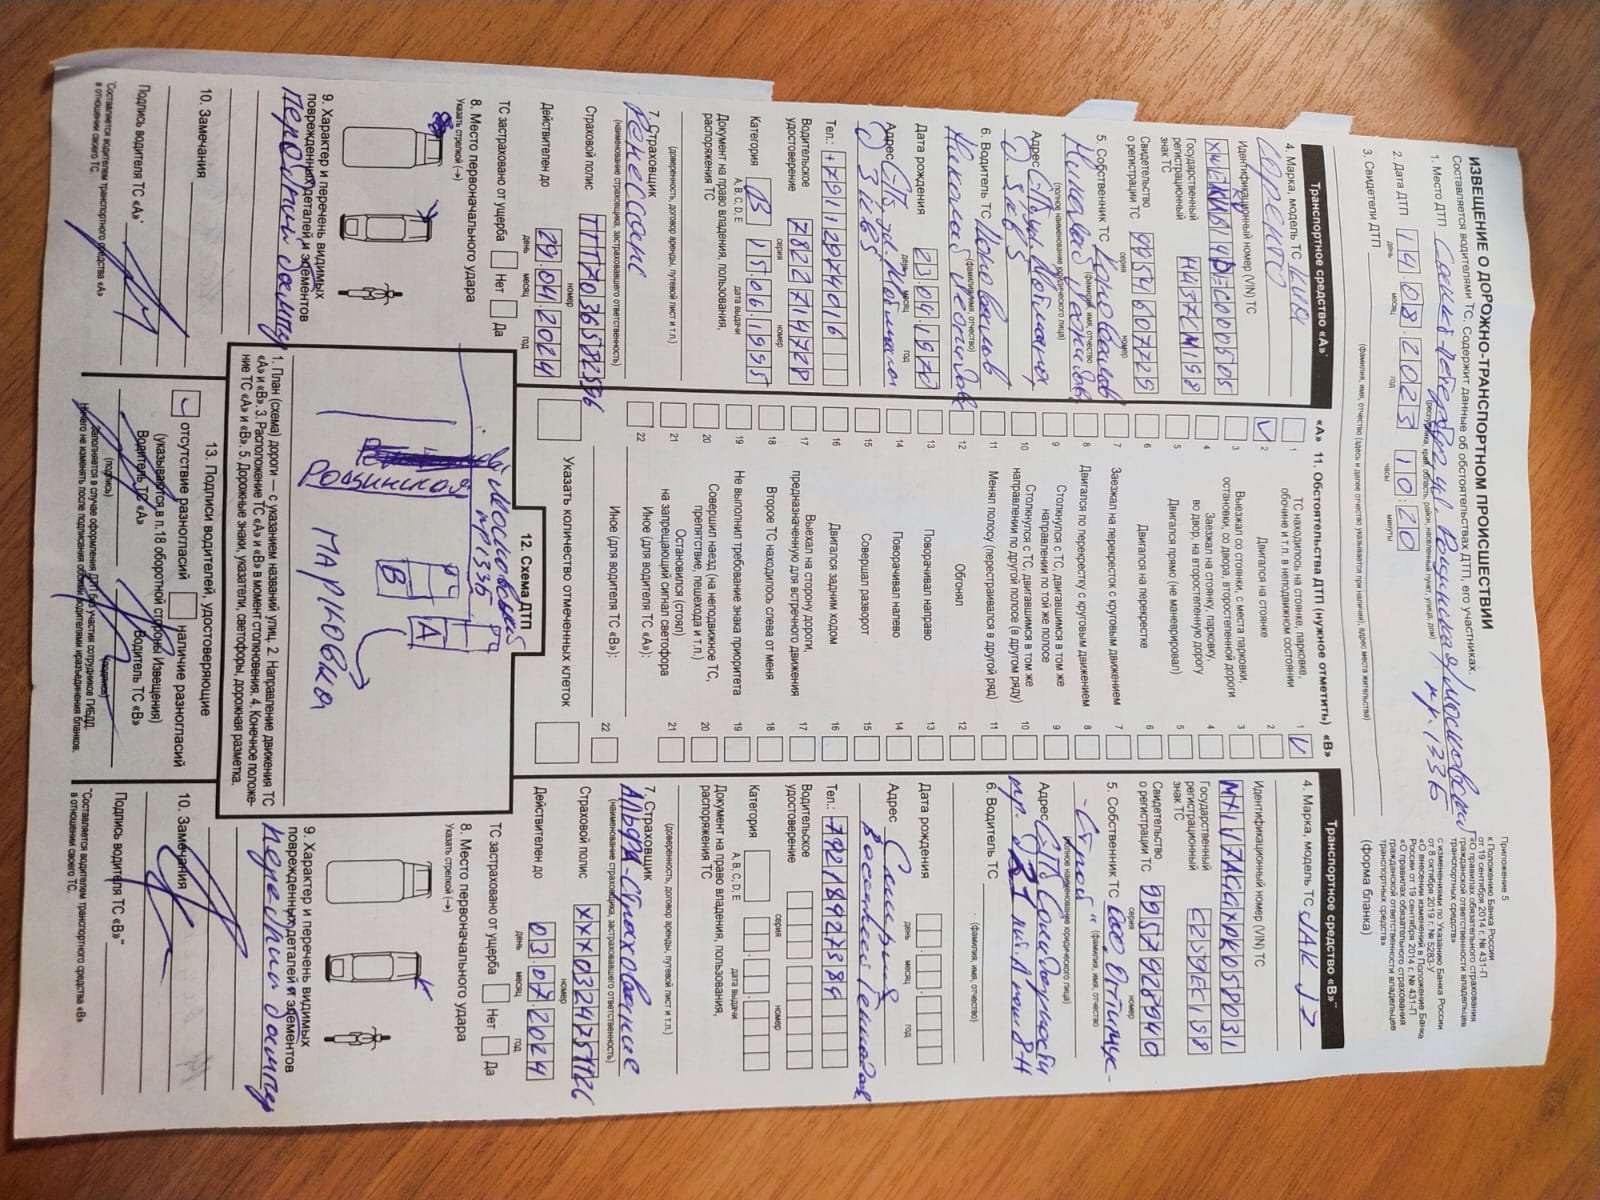 Приложение 5
к Положению Банка России
от 19 сентября 2014 г. № 431-П
«О правилах обязательного страхования
гражданской ответственности владельцев
транспортных средств»
с изменениями по Указанию Банка России
от 8 октября 2019 г. № 5283-У
«О внесении изменений в Положение Банка
России от 19 сентября 2014 г. № 431-П
«О правилах обязательного страхования
гражданской ответственности владельцев
транспортных средств»
(форма бланка)
ИЗВЕЩЕНИЕ О ДОРОЖНО-ТРАНСПОРТНОМ ПРОИСШЕСТВИИ
Составляется водителями ТС. Содержит данные об обстоятельствах ДТП, его участниках.
1. Место ДТП Санкт-Петербург ул. Рощинская/Московский
пр. 133Б
(республика, край, область, район, населенный пункт, улица, дом)
2. Дата ДТП 14.08.2023 10:20
день месяц год часы минуты
3. Свидетели ДТП
(фамилия, имя, отчество (здесь и далее отчество указывается при наличии), адрес места жительства)
Транспортное средство «А»*
4. Марка, модель ТС Киа
Соренто
Идентификационный номер (VIN) ТС
Государственный
регистрационный
знак ТС Н437СМ198
Свидетельство
о регистрации ТС 9954 607729
серия номер
5. Собственник ТС Коновалов
(фамилия, имя, отчество
(полное наименование юридического лица))
Адрес СПБ, ул.
6. Водитель ТС Коновалов
(фамилия, имя, отчество)
Дата рождения
день месяц год
Адрес СПб, ул.
Тел.: +79112974016
Водительское
удостоверение 7822 714728
серия номер
Категория В 15.06.1995
A, B, C, D, E дата выдачи
Документ на право владения, пользования,
распоряжения ТС
(доверенность, договор аренды, путевой лист и т.п.)
7. Страховщик
Ренессанс
(наименование страховщика, застраховавшего ответственность)
Страховой полис ТТТ7036582596
номер
Действителен до 29.04.2024
день месяц год
ТС застраховано от ущерба Нет Да
8. Место первоначального удара
Указать стрелкой (→)
9. Характер и перечень видимых
поврежденных деталей и элементов
Передний бампер
10. Замечания
Подпись водителя ТС «А»*
*Составляется водителем транспортного средства «А»
в отношении своего ТС.
«А» 11. Обстоятельства ДТП (нужное отметить) «В»
1 ТС находилось на стоянке, парковке,
обочине и т.п. в неподвижном состоянии 1 V
V 2 Двигался на стоянке 2
3 Выезжал со стоянки, с места парковки,
остановки, со двора, второстепенной дороги 3
4 Заезжал на стоянку, парковку,
во двор, на второстепенную дорогу 4
5 Двигался прямо (не маневрировал) 5
6 Двигался на перекрестке 6
7 Заезжал на перекресток с круговым движением 7
8 Двигался по перекрестку с круговым движением 8
9 Столкнулся с ТС, двигавшимся в том же
направлении по той же полосе 9
10 Столкнулся с ТС, двигавшимся в том же
направлении по другой полосе (в другом ряду) 10
11 Менял полосу (перестраивался в другой ряд) 11
12 Обгонял 12
13 Поворачивал направо 13
14 Поворачивал налево 14
15 Совершал разворот 15
16 Двигался задним ходом 16
17 Выехал на сторону дороги,
предназначенную для встречного движения 17
18 Второе ТС находилось слева от меня 18
19 Не выполнил требование знака приоритета 19
20 Совершил наезд (на неподвижное ТС,
препятствие, пешехода и т.п.) 20
21 Остановился (стоял)
на запрещающий сигнал светофора 21
22 Иное (для водителя ТС «А»):
Иное (для водителя ТС «В»): 22
Указать количество отмеченных клеток
12. Схема ДТП
Московский
пр 133Б
Рощинская
А
В
ПАРКОВКА
1. План (схема) дороги — с указанием названий улиц. 2. Направление движения ТС
«А» и «В». 3. Расположение ТС «А» и «В» в момент столкновения. 4. Конечное положе-
ние ТС «А» и «В». 5. Дорожные знаки, указатели, светофоры, дорожная разметка.
13. Подписи водителей, удостоверяющие
отсутствие разногласий наличие разногласий
(указываются в п. 18 оборотной стороны Извещения)
Водитель ТС «А» Водитель ТС «В»
(подпись) (подпись)
Заполняется в случае оформления ДТП без участия сотрудников ГИБДД.
Ничего не изменять после подписания обоими водителями и разъединения бланков.
Транспортное средство «В»**
4. Марка, модель ТС JAK J7
Идентификационный номер (VIN) ТС
Государственный
регистрационный
знак ТС Е259ЕС198
Свидетельство
о регистрации ТС 9957 928940
серия номер
5. Собственник ТС ООО Оптимус-
(фамилия, имя, отчество
(полное наименование юридического лица))
Адрес СПБ
6. Водитель ТС
(фамилия, имя, отчество)
Дата рождения
день месяц год
Адрес
Тел.: 79218927389
Водительское
удостоверение
серия номер
Категория
A, B, C, D, E дата выдачи
Документ на право владения, пользования,
распоряжения ТС
(доверенность, договор аренды, путевой лист и т.п.)
7. Страховщик
Альфа-страхование
(наименование страховщика, застраховавшего ответственность)
Страховой полис
номер
Действителен до 03.07.2024
день месяц год
ТС застраховано от ущерба Нет Да
8. Место первоначального удара
Указать стрелкой (→)
9. Характер и перечень видимых
поврежденных деталей и элементов
Передний бампер
10. Замечания
Подпись водителя ТС «В»**
*Составляется водителем транспортного средства «В»
в отношении своего ТС.